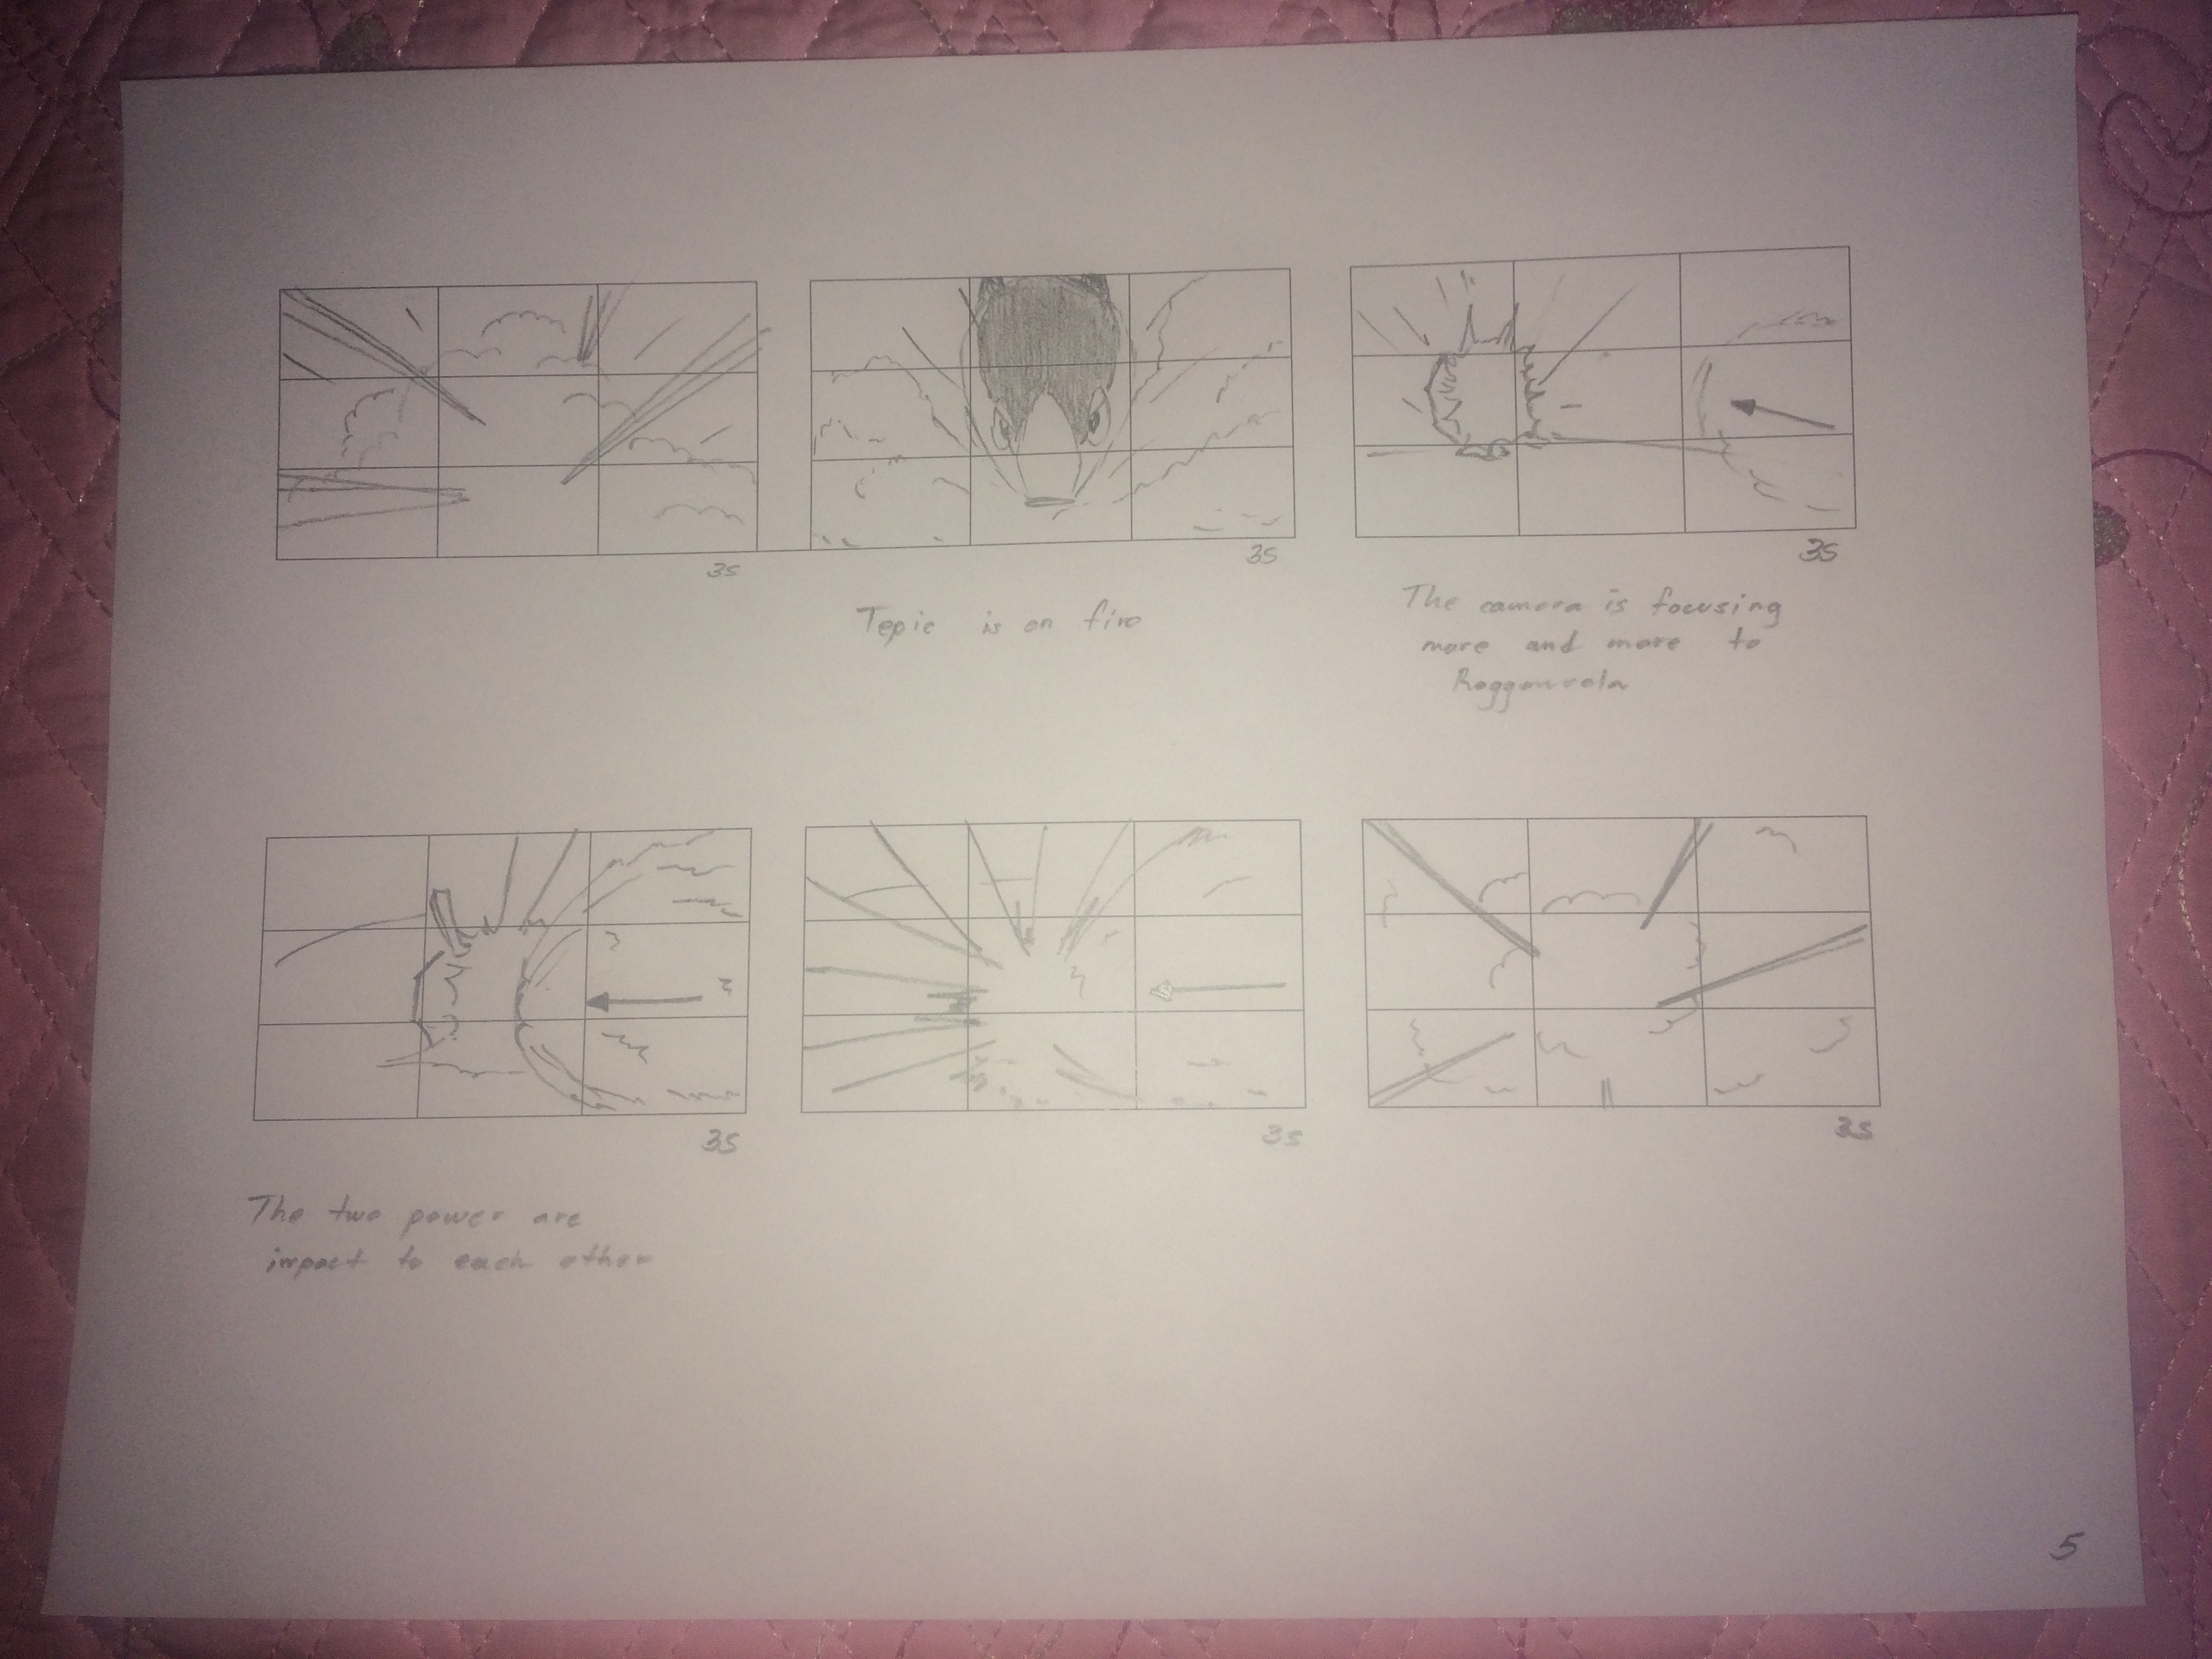 3s
3s
3s
Tepic is on fire
The camera is focusing
more and more to
Roggenrola
3s
3s
3s
The two power are
impact to each other
5